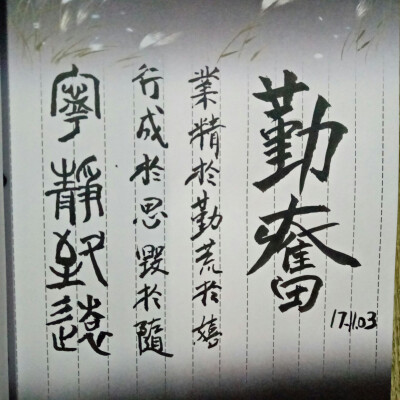 勤奮
業精於勤荒於嬉
行成於思毀於隨
寧靜致遠
17.11.03